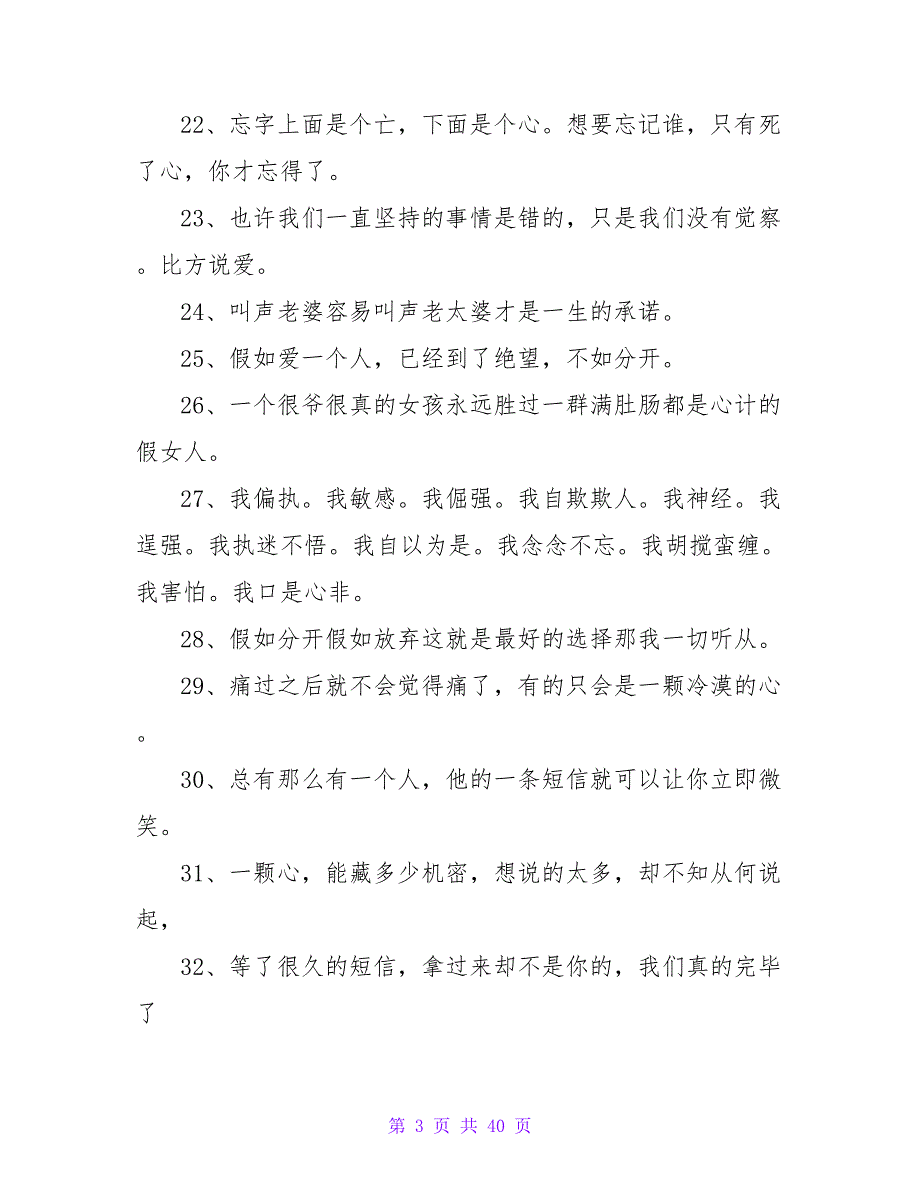 22、忘字上面是个亡，下面是个心。想要忘记谁，只有死
了心，你才忘得了。
23、也许我们一直坚持的事情是错的，只是我们没有觉察
。比方说爱。
24、叫声老婆容易叫声老太婆才是一生的承诺。
25、假如爱一个人，已经到了绝望，不如分开。
26、一个很爷很真的女孩永远胜过一群满肚肠都是心计的
假女人。
27、我偏执。我敏感。我倔强。我自欺欺人。我神经。我
逞强。我执迷不悟。我自以为是。我念念不忘。我胡搅蛮缠。
我害怕。我口是心非。
28、假如分开假如放弃这就是最好的选择那我一切听从。
29、痛过之后就不会觉得痛了，有的只会是一颗冷漠的心
。
30、总有那么有一个人，他的一条短信就可以让你立即微
笑。
31、一颗心，能藏多少机密，想说的太多，却不知从何说
起，
32、等了很久的短信，拿过来却不是你的，我们真的完毕
了
第 3 页 共 40 页